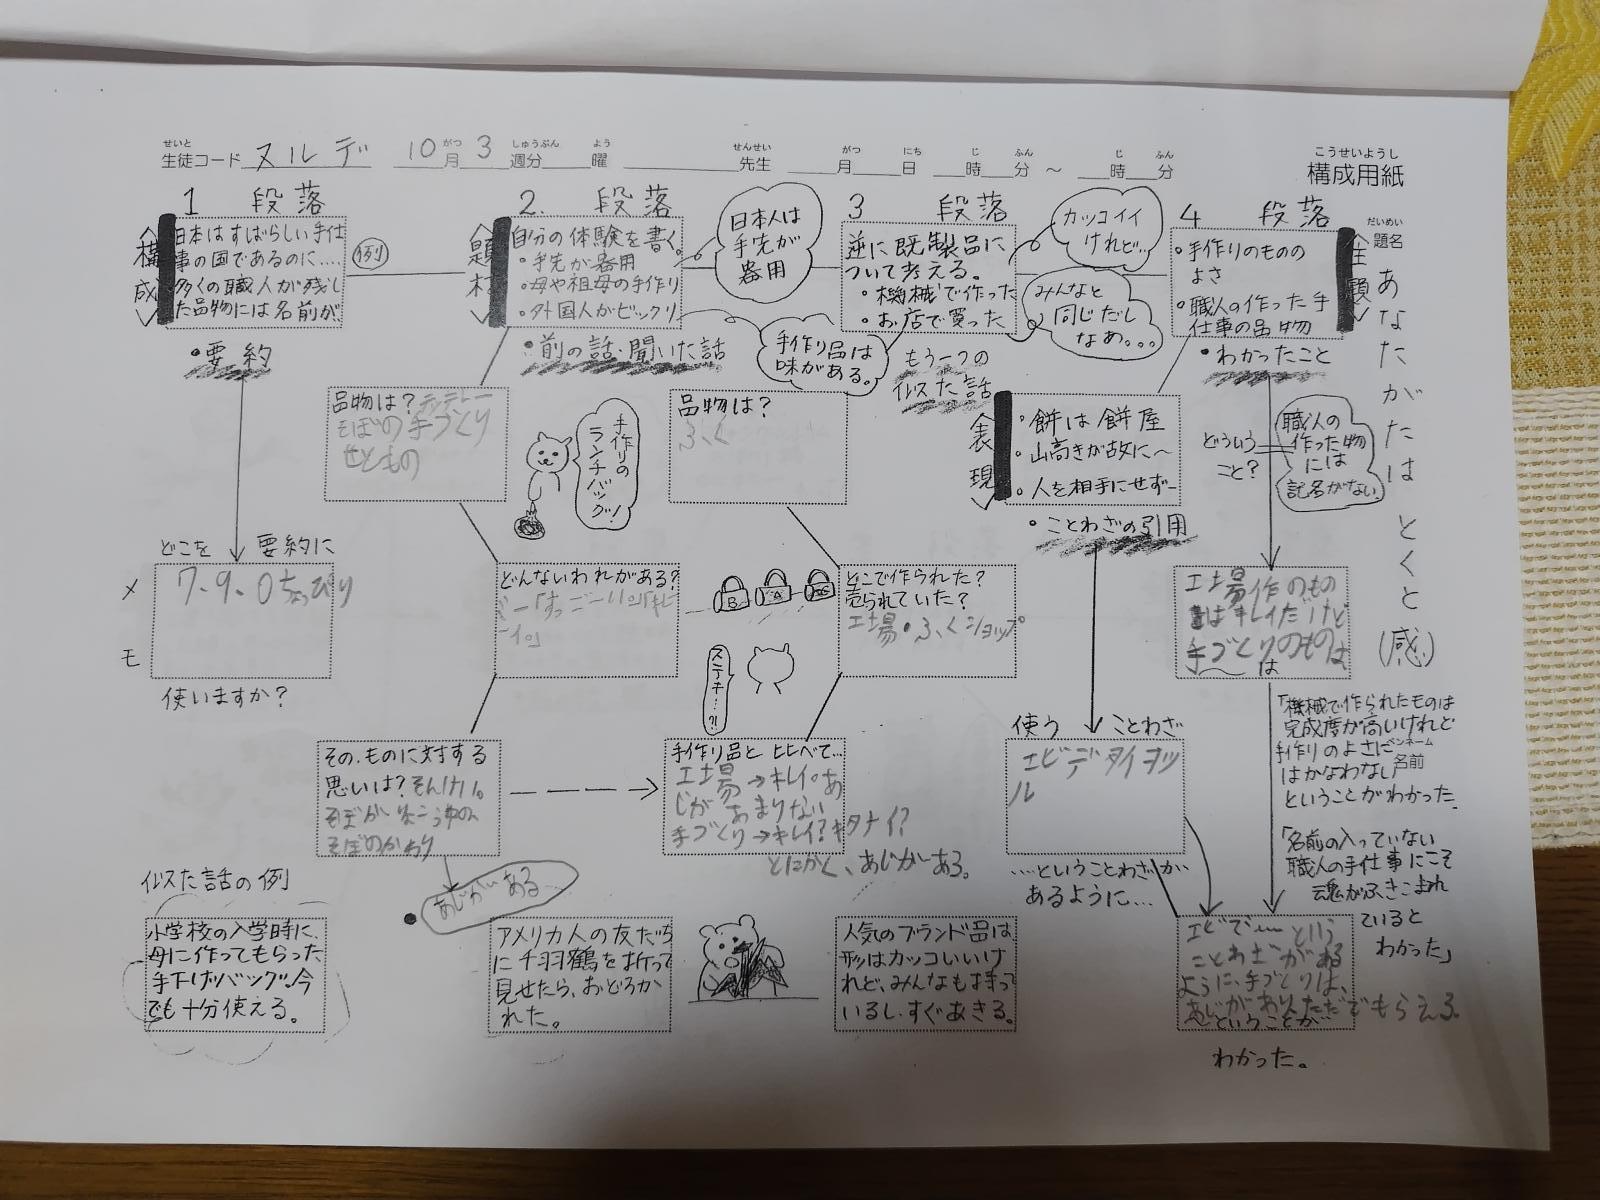 せいと がつ しゅうぶん よう せんせい がつ にち じ ふん じ ふん こうせいようし
生徒コード ヌルデ 10月3週分 曜 先生 月 日 時 分 ～ 時 分 構成用紙
1 段落
<構成>
日本はすばらしい手仕
事の国であるのに….
多くの職人が残し
た品物には名前が
・要約
例
どこを 要約に
メモ
7.9.0ちょっぴり
使いますか?
似た話の例
小学校の入学時に、
母に作ってもらった
手下げバッグ。今
でも十分使える。
2. 段落
<題材
自分の体験を書く。
・手先が器用
・母や祖母の手作り
・外国人がビックリ
・前の話・聞いた話
日本人は
手先が
器用
手作り品は
味がある。
品物は?
そばの手づくり
せともの
手作りの
ランチバッグ!
どんないわれがある?
その、ものに対する
思いは?そんけい。
あじがある
アメリカ人の友だち
に千羽鶴を折って
見せたら、おどろか
れた。
3 段落
逆に既製品に
ついて考える。
・機械で作った
・お店で買った
カッコイイ
けれど…
みんなと
同じだし
なぁ。。。
もう一つの
似た話
品物は?
ふく
B A
ステキ…?!
どこで作られた?
売られていた?
工場・ふくショップ
手作り品と比べて…
工場→キレイ。あ
じがあまりない
手づくり→キレイ?キタナイ?
とにかく、あじがある。
人気のブランド品は
形はカッコいいけ
れど、みんなも持って
いるし、すぐあきる。
4 段落
<主題>
・手作りのものの
よさ
・職人の作った手
仕事の品物
・わかったこと
<表現>
・餅は餅屋
・山高きが故に～
・人を相手にせず―
・ことわざの引用
どういう
こと?
職人の
作った物
には
記名がない
工場作のもの
はキレイだけど
手づくりのものは
は
使う ことわざ
エビデタイヲツ
ル
…ということわざが
あるように…
エビで…という
ことわざがある
ように、手づくりは、
ということが
わかった。
だいめい
題名
あなたがたはとくと(感)
「機械で作られたものは
完成度が高いけれど
手作りのよさに
はかなわない
ということがわかった。
名前
「名前の入っていない
職人の手仕事にこそ
魂がふきこまれ
ていると
わかった」